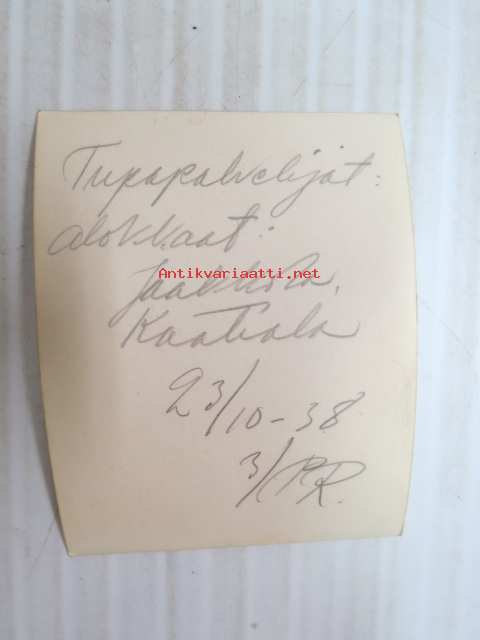 Tupapalvelijat:
alokkaat:
Antikvariaatti.net
Jaakkola,
Kaatiala
23/10-38
3/PR.